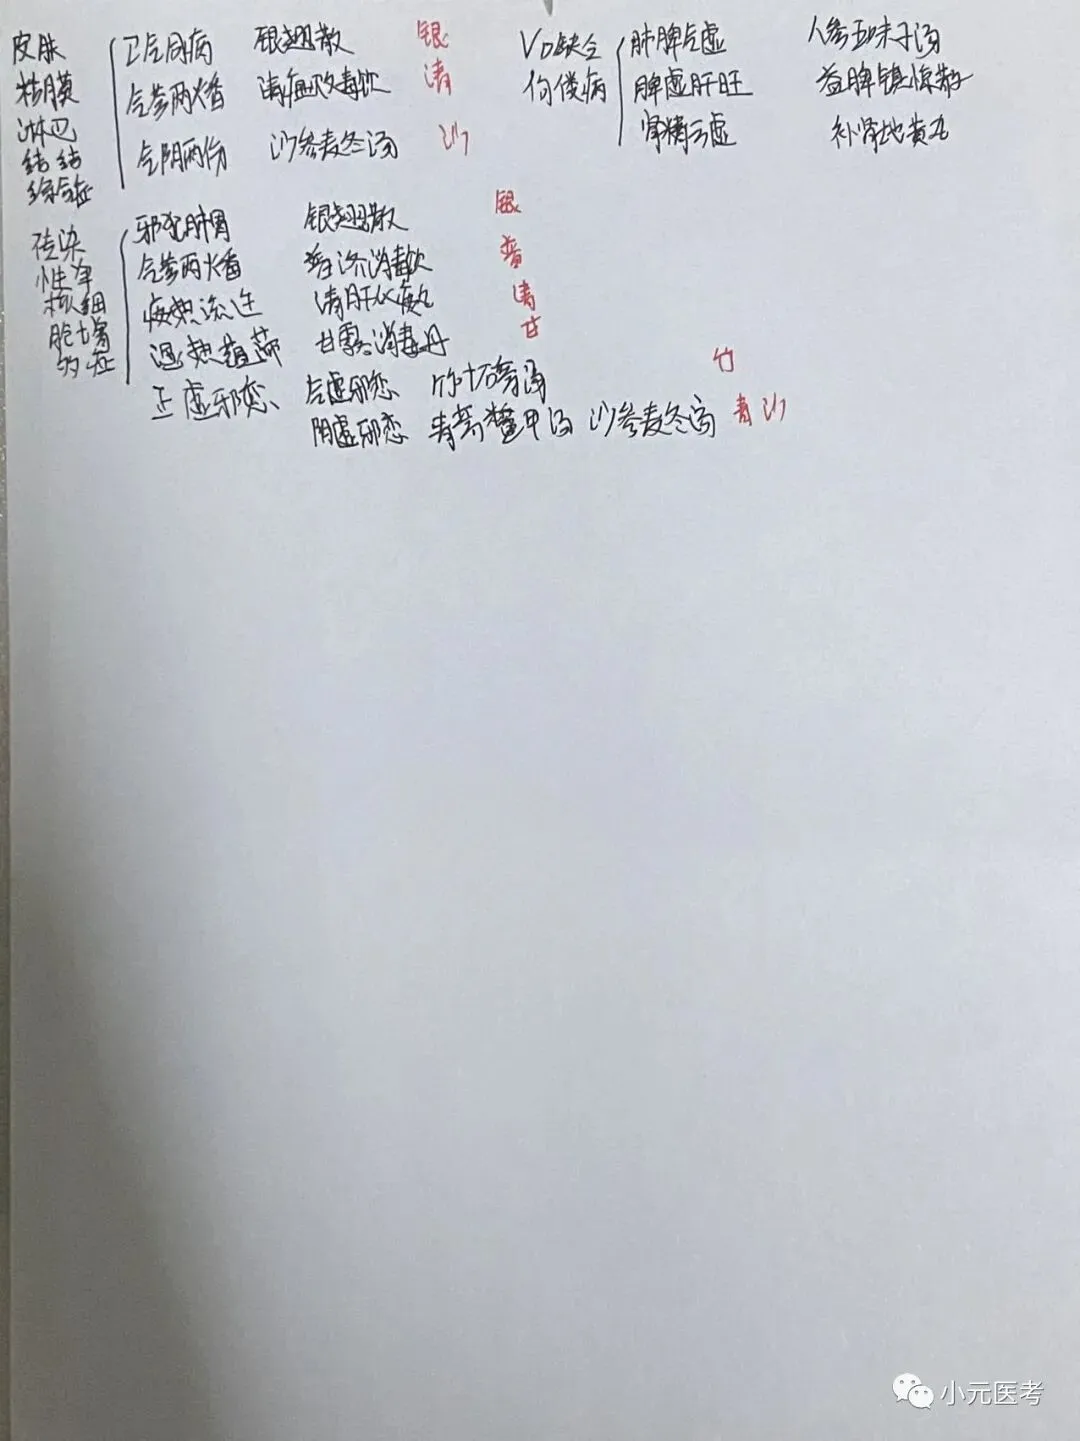 皮肤
粘膜
淋巴
结 结
综合征
卫气同病 银翘散 银
气营两燔 清瘟败毒饮 清
气阴两伤 沙参麦冬汤 沙
VD缺乏
佝偻病
肺脾气虚 人参五味子汤
脾虚肝旺 益脾镇惊散
肾精亏虚 补肾地黄丸
传染
性单
核细
胞增
多症
邪犯肺胃 银翘散 银
气营两燔 普济消毒饮 普
痰热流注 清肝化痰丸 清
湿热蕴滞 甘露消毒丹 甘
正虚邪恋 气虚邪恋 竹叶石膏汤 竹
阴虚邪恋 青蒿鳖甲汤 沙参麦冬汤 青 沙
小元医考